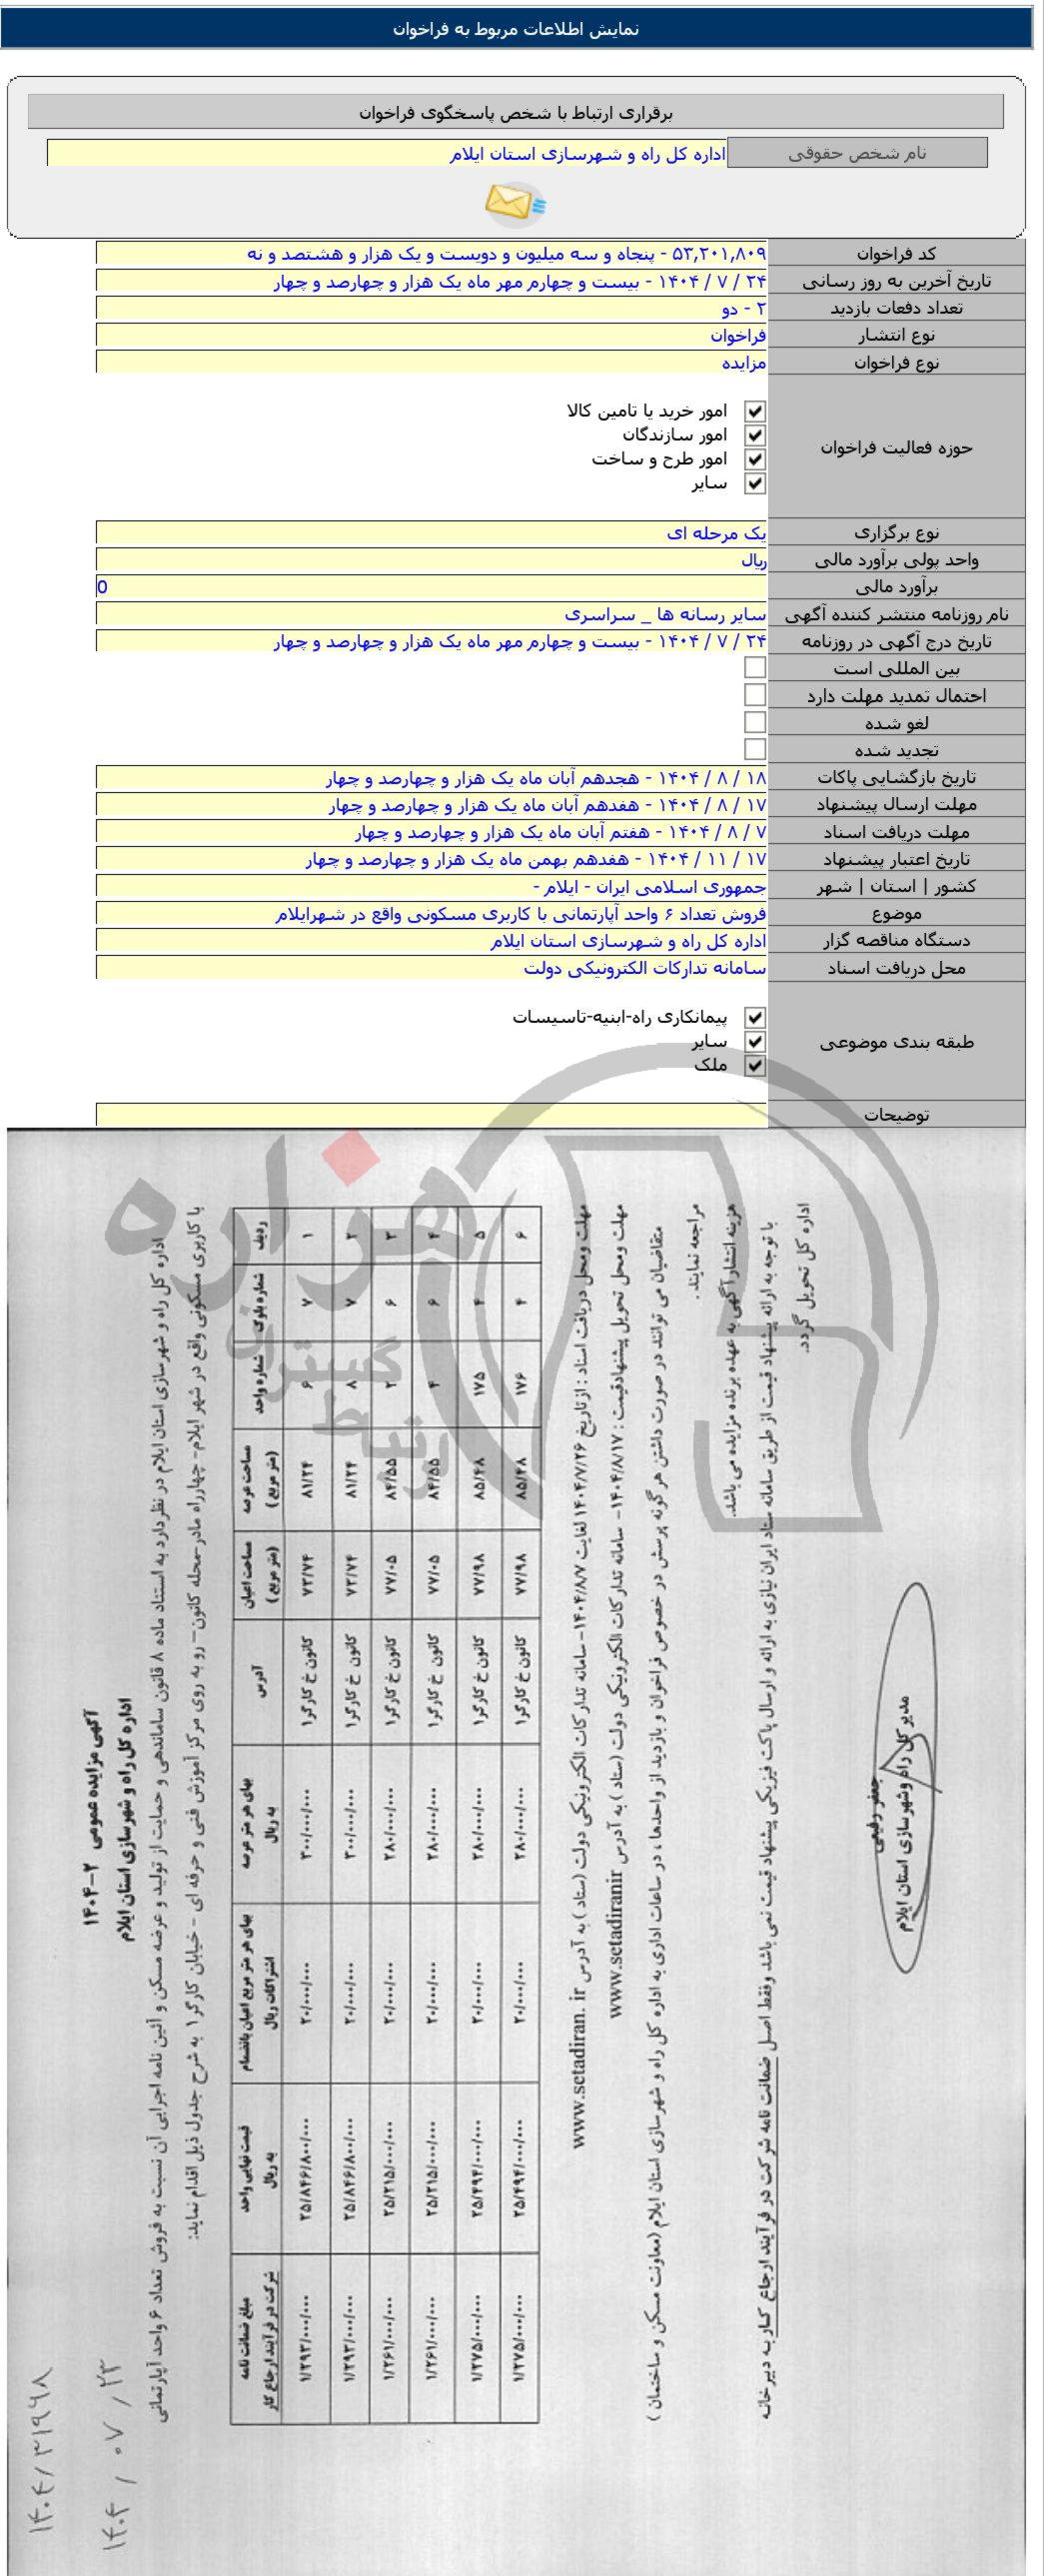 نمایش اطلاعات مربوط به فراخوان
برقراری ارتباط با شخص پاسخگوی فراخوان
نام شخص حقوقی اداره کل راه و شهرسازی استان ایلام
کد فراخوان ۵۳,۲۰۱,۸۰۹ - پنجاه و سه میلیون و دویست و یک هزار و هشتصد و نه
تاریخ آخرین به روز رسانی ۲۴ / ۷ / ۱۴۰۴ - بیست و چهارم مهر ماه یک هزار و چهارصد و چهار
تعداد دفعات بازدید ۲ - دو
نوع انتشار فراخوان
نوع فراخوان مزایده
حوزه فعالیت فراخوان
امور خرید یا تامین کالا
امور سازندگان
امور طرح و ساخت
سایر
نوع برگزاری یک مرحله ای
واحد پولی برآورد مالی ریال
برآورد مالی 0
نام روزنامه منتشر کننده آگهی سایر رسانه ها _ سراسری
تاریخ درج آگهی در روزنامه ۲۴ / ۷ / ۱۴۰۴ - بیست و چهارم مهر ماه یک هزار و چهارصد و چهار
بین المللی است
احتمال تمدید مهلت دارد
لغو شده
تجدید شده
تاریخ بازگشایی پاکات ۱۸ / ۸ / ۱۴۰۴ - هجدهم آبان ماه یک هزار و چهارصد و چهار
مهلت ارسال پیشنهاد ۱۷ / ۸ / ۱۴۰۴ - هفدهم آبان ماه یک هزار و چهارصد و چهار
مهلت دریافت اسناد ۷ / ۸ / ۱۴۰۴ - هفتم آبان ماه یک هزار و چهارصد و چهار
تاریخ اعتبار پیشنهاد ۱۷ / ۱۱ / ۱۴۰۴ - هفدهم بهمن ماه یک هزار و چهارصد و چهار
کشور | استان | شهر جمهوری اسلامی ایران - ایلام -
موضوع فروش تعداد ۶ واحد آپارتمانی با کاربری مسکونی واقع در شهرایلام
دستگاه مناقصه گزار اداره کل راه و شهرسازی استان ایلام
محل دریافت اسناد سامانه تدارکات الکترونیکی دولت
طبقه بندی موضوعی
پیمانکاری راه-ابنیه-تاسیسات
سایر
ملک
توضیحات
هزاره
ارتباط گستران
۱۴۰۴/۳۱۹۹۸
۱۴۰۴ / ۰۷ / ۲۳
آگهی مزایده عمومی ۲-۱۴۰۴
اداره کل راه و شهرسازی استان ایلام
اداره کل راه و شهرسازی استان ایلام در نظر دارد به استناد ماده ۸ قانون ساماندهی و حمایت از تولید و عرضه مسکن و آئین نامه اجرایی آن نسبت به فروش تعداد ۶ واحد آپارتمانی
با کاربری مسکونی واقع در شهر ایلام- چهارراه مادر-محله کانون - رو به روی مرکز آموزش فنی و حرفه ای - خیابان کارگر ۱ به شرح جدول ذیل اقدام نماید:
ردیف شماره بلوک شماره واحد مساحت عرصه (متر مربع) مساحت اعیان (متر مربع) آدرس بهای هر متر عرصه به ریال بهای هر متر مربع اعیان بانضمام اشتراکات ریال قیمت نهایی واحد به ریال مبلغ ضمانت نامه شرکت در فرآیند ارجاع کار
۱ ۷ ۶ ۸۱/۲۴ ۷۳/۷۴ کانون خ کارگر۱ ۳۰۰/۰۰۰/۰۰۰ ۲۰/۰۰۰/۰۰۰ ۲۵/۸۴۶/۸۰۰/۰۰۰ ۱/۲۹۳/۰۰۰/۰۰۰
۲ ۷ ۸ ۸۱/۲۴ ۷۳/۷۴ کانون خ کارگر۱ ۳۰۰/۰۰۰/۰۰۰ ۲۰/۰۰۰/۰۰۰ ۲۵/۸۴۶/۸۰۰/۰۰۰ ۱/۲۹۳/۰۰۰/۰۰۰
۳ ۶ ۲ ۸۴/۵۵ ۷۷/۰۵ کانون خ کارگر۱ ۲۸۰/۰۰۰/۰۰۰ ۲۰/۰۰۰/۰۰۰ ۲۵/۲۱۵/۰۰۰/۰۰۰ ۱/۲۶۱/۰۰۰/۰۰۰
۴ ۶ ۴ ۸۴/۵۵ ۷۷/۰۵ کانون خ کارگر۱ ۲۸۰/۰۰۰/۰۰۰ ۲۰/۰۰۰/۰۰۰ ۲۵/۲۱۵/۰۰۰/۰۰۰ ۱/۲۶۱/۰۰۰/۰۰۰
۵ ۴ ۱۷۵ ۸۵/۴۸ ۷۷/۹۸ کانون خ کارگر۱ ۲۸۰/۰۰۰/۰۰۰ ۲۰/۰۰۰/۰۰۰ ۲۵/۴۹۴/۰۰۰/۰۰۰ ۱/۲۷۵/۰۰۰/۰۰۰
۶ ۴ ۱۷۶ ۸۵/۴۸ ۷۷/۹۸ کانون خ کارگر۱ ۲۸۰/۰۰۰/۰۰۰ ۲۰/۰۰۰/۰۰۰ ۲۵/۴۹۴/۰۰۰/۰۰۰ ۱/۲۷۵/۰۰۰/۰۰۰
مهلت ومحل دریافت اسناد : ازتاریخ ۱۴۰۴/۷/۲۶ لغایت ۱۴۰۴/۸/۷- سامانه تدارکات الکترونیکی دولت (ستاد ) به آدرس www.setadiran. ir
مهلت ومحل تحویل پیشنهادقیمت : ۱۴۰۴/۸/۱۷- سامانه تدارکات الکترونیکی دولت (ستاد ) به آدرس www.setadiranir
متقاضیان می توانند در صورت داشتن هر گونه پرسش در خصوص فراخوان و بازدید از واحدها ، در ساعات اداری به اداره کل راه و شهرسازی استان ایلام (معاونت مسکن و ساختمان )
مراجعه نمایند .
هزینه انتشار آگهی به عهده برنده مزایده می باشد.
با توجه به ارائه پیشنهاد قیمت از طریق سامانه ستاد ایران نیازی به ارائه و ارسال پاکت فیزیکی پیشنهاد قیمت نمی باشد وفقط اصل ضمانت نامه شرکت در فرآیند ارجاع کار به دبیر خانه
اداره کل تحویل گردد.
جعفر رفیعی
مدیر کل راه وشهرسازی استان ایلام